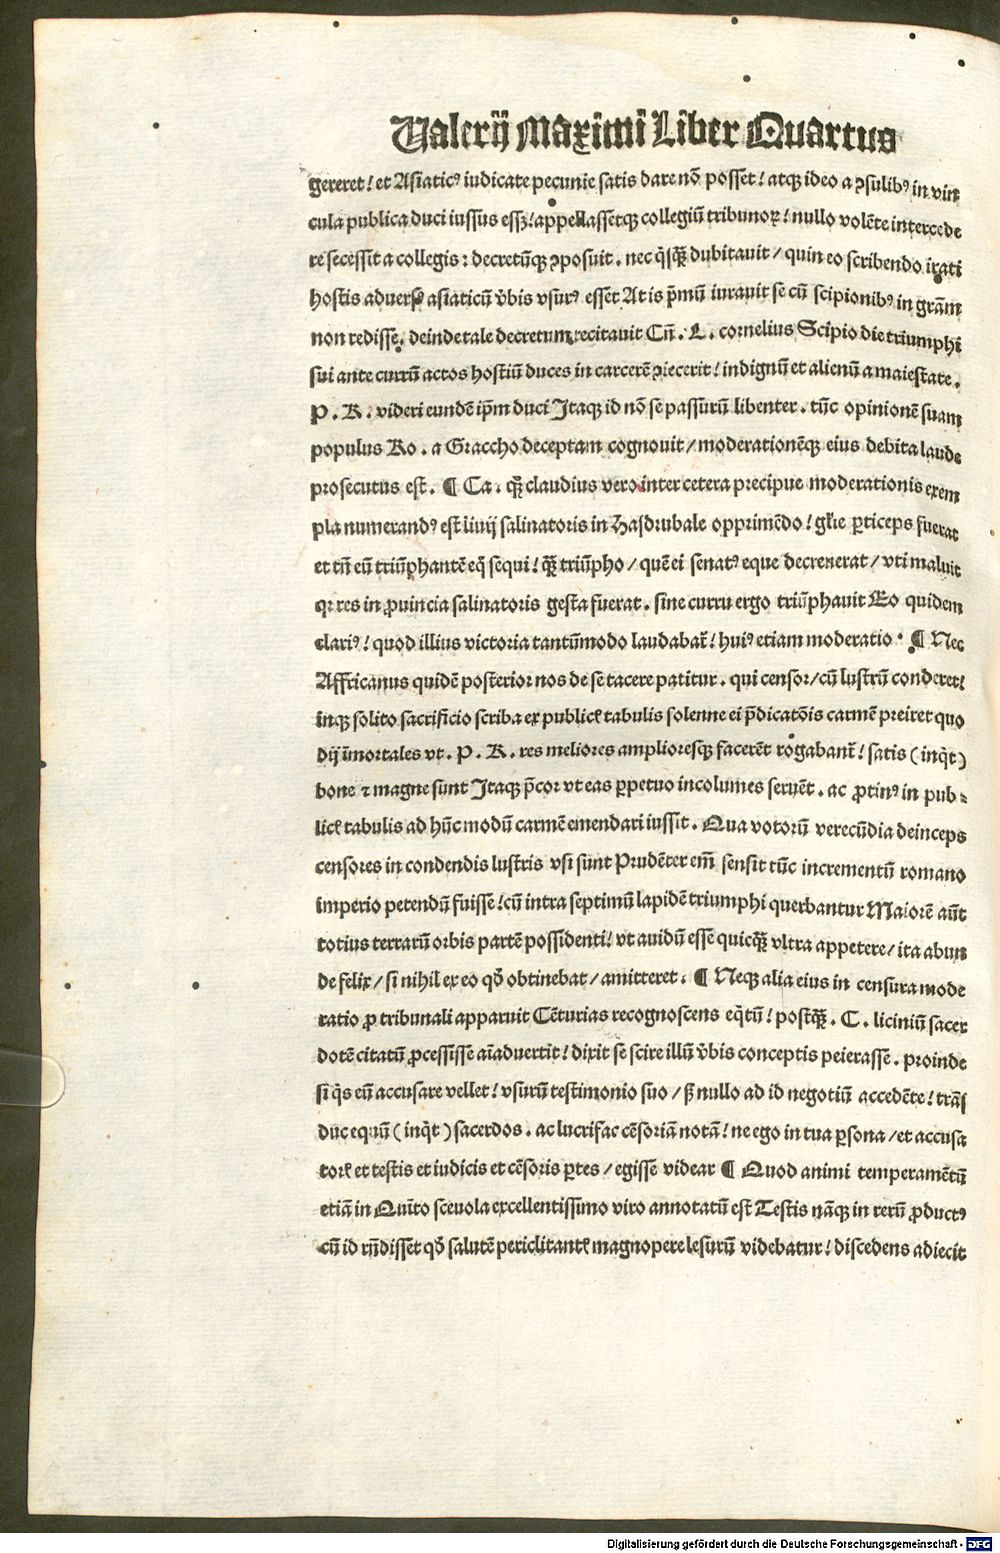 Valerij Maximi Liber Quartus
gereret! et Asiaticꝰ iudicate pecunie satis dare nō posset! atqꝫ ideo a ꝯsulibꝰ in vin
cula publica duci iussus essꝫ! appellassetqꝫ collegiū tribunoꝝ! nullo volēte intercede
re secessit a collegis: decretūqꝫ ꝯposuit. nec q̄sqꝫ̄ dubitauit / quin eo scribendo irati
hostis aduersꝰ asiaticū v̄bis vsurꝰ esset At is p̄mū iurauit se cū scipionibꝰ in grām
non redisse. deinde tale decretum recitauit Cū. L. cornelius Scipio die triumphi
sui ante currū actos hostiū duces in carcerē ꝯiecerit! indignū et alienū a maiestate.
P. R. videri eundē ip̄m duci Itaqꝫ id nō se passurū libenter. tūc opinionē suam
populus Ro. a Graccho deceptam cognouit / moderationēqꝫ eius debita laude
prosecutus est. ¶ Ca. qꝫ̄ claudius vero inter cetera precipue moderationis exem
pla numerandꝰ est liuij salinatoris in Hasdrubale opprimēdo! gl̄ie ꝑticeps fuerat
et tn̄ eū triūphantē eq̄ sequi! qꝫ̄ triūpho / quē ei senatꝰ eque decreuerat / vti maluit
qꝛ res in ꝓuincia salinatoris gesta fuerat. sine curru ergo triūphauit Eo quidem
clariꝰ! quod illius victoria tantūmodo laudabat̄! huiꝰ etiam moderatio. ¶ Nec
Affricanus quidē posterior nos de se tacere patitur. qui censor / cū lustrū conderet!
inqꝫ solito sacrificio scriba ex publicꝭ tabulis solenne ei p̄dicatōis carmē preiret quo
dij īmortales vt. P. R. res meliores amplioresqꝫ facerēt rogabant̄! satis (inq̄t)
bone ⁊ magne sunt Itaqꝫ p̄cor vt eas ꝑpetuo incolumes seruēt. ac ꝓtinꝰ in pub⸗
licꝭ tabulis ad hūc modū carmē emendari iussit. Qua votorū verecūdia deinceps
censores in condendis lustris vsi sunt Prudēter em̄ sensit tūc incrementū romano
imperio petendū fuisse! cū intra septimū lapidē triumphi querbantur Maiorē aūt
totius terrarū orbis partē possidenti! vt auidū esse quicqꝫ̄ vltra appetere / ita abun
de felix / si nihil ex eo qd̄ obtinebat / amitteret. ¶ Neqꝫ alia eius in censura mode
ratio ꝓ tribunali apparuit Cēturias recognoscens eq̄tū! postqꝫ̄. C. liciniū sacer
dotē citatū ꝓcessisse aīaduertit! dixit se scire illū v̄bis conceptis peierasse. proinde
si q̄s eū accusare vellet! vsurū testimonio suo / sꝫ nullo ad id negotiū accedēte! trās
duc equū (inq̄t) sacerdos. ac lucrifac cēsoriā notā! ne ego in tua ꝑsona / et accusa
torꝭ et testis et iudicis et cēsoris ꝑtes / egisse videar ¶ Quod animi temperamētū
etiā in Quīto sceuola excellentissimo viro annotatū est Testis nāqꝫ in rerū ꝓductꝰ
cū id rn̄disset qd̄ salutē periclitantꝭ magnopere lesurū videbatur! discedens adiecit
Digitalisierung gefördert durch die Deutsche Forschungsgemeinschaft - DFG